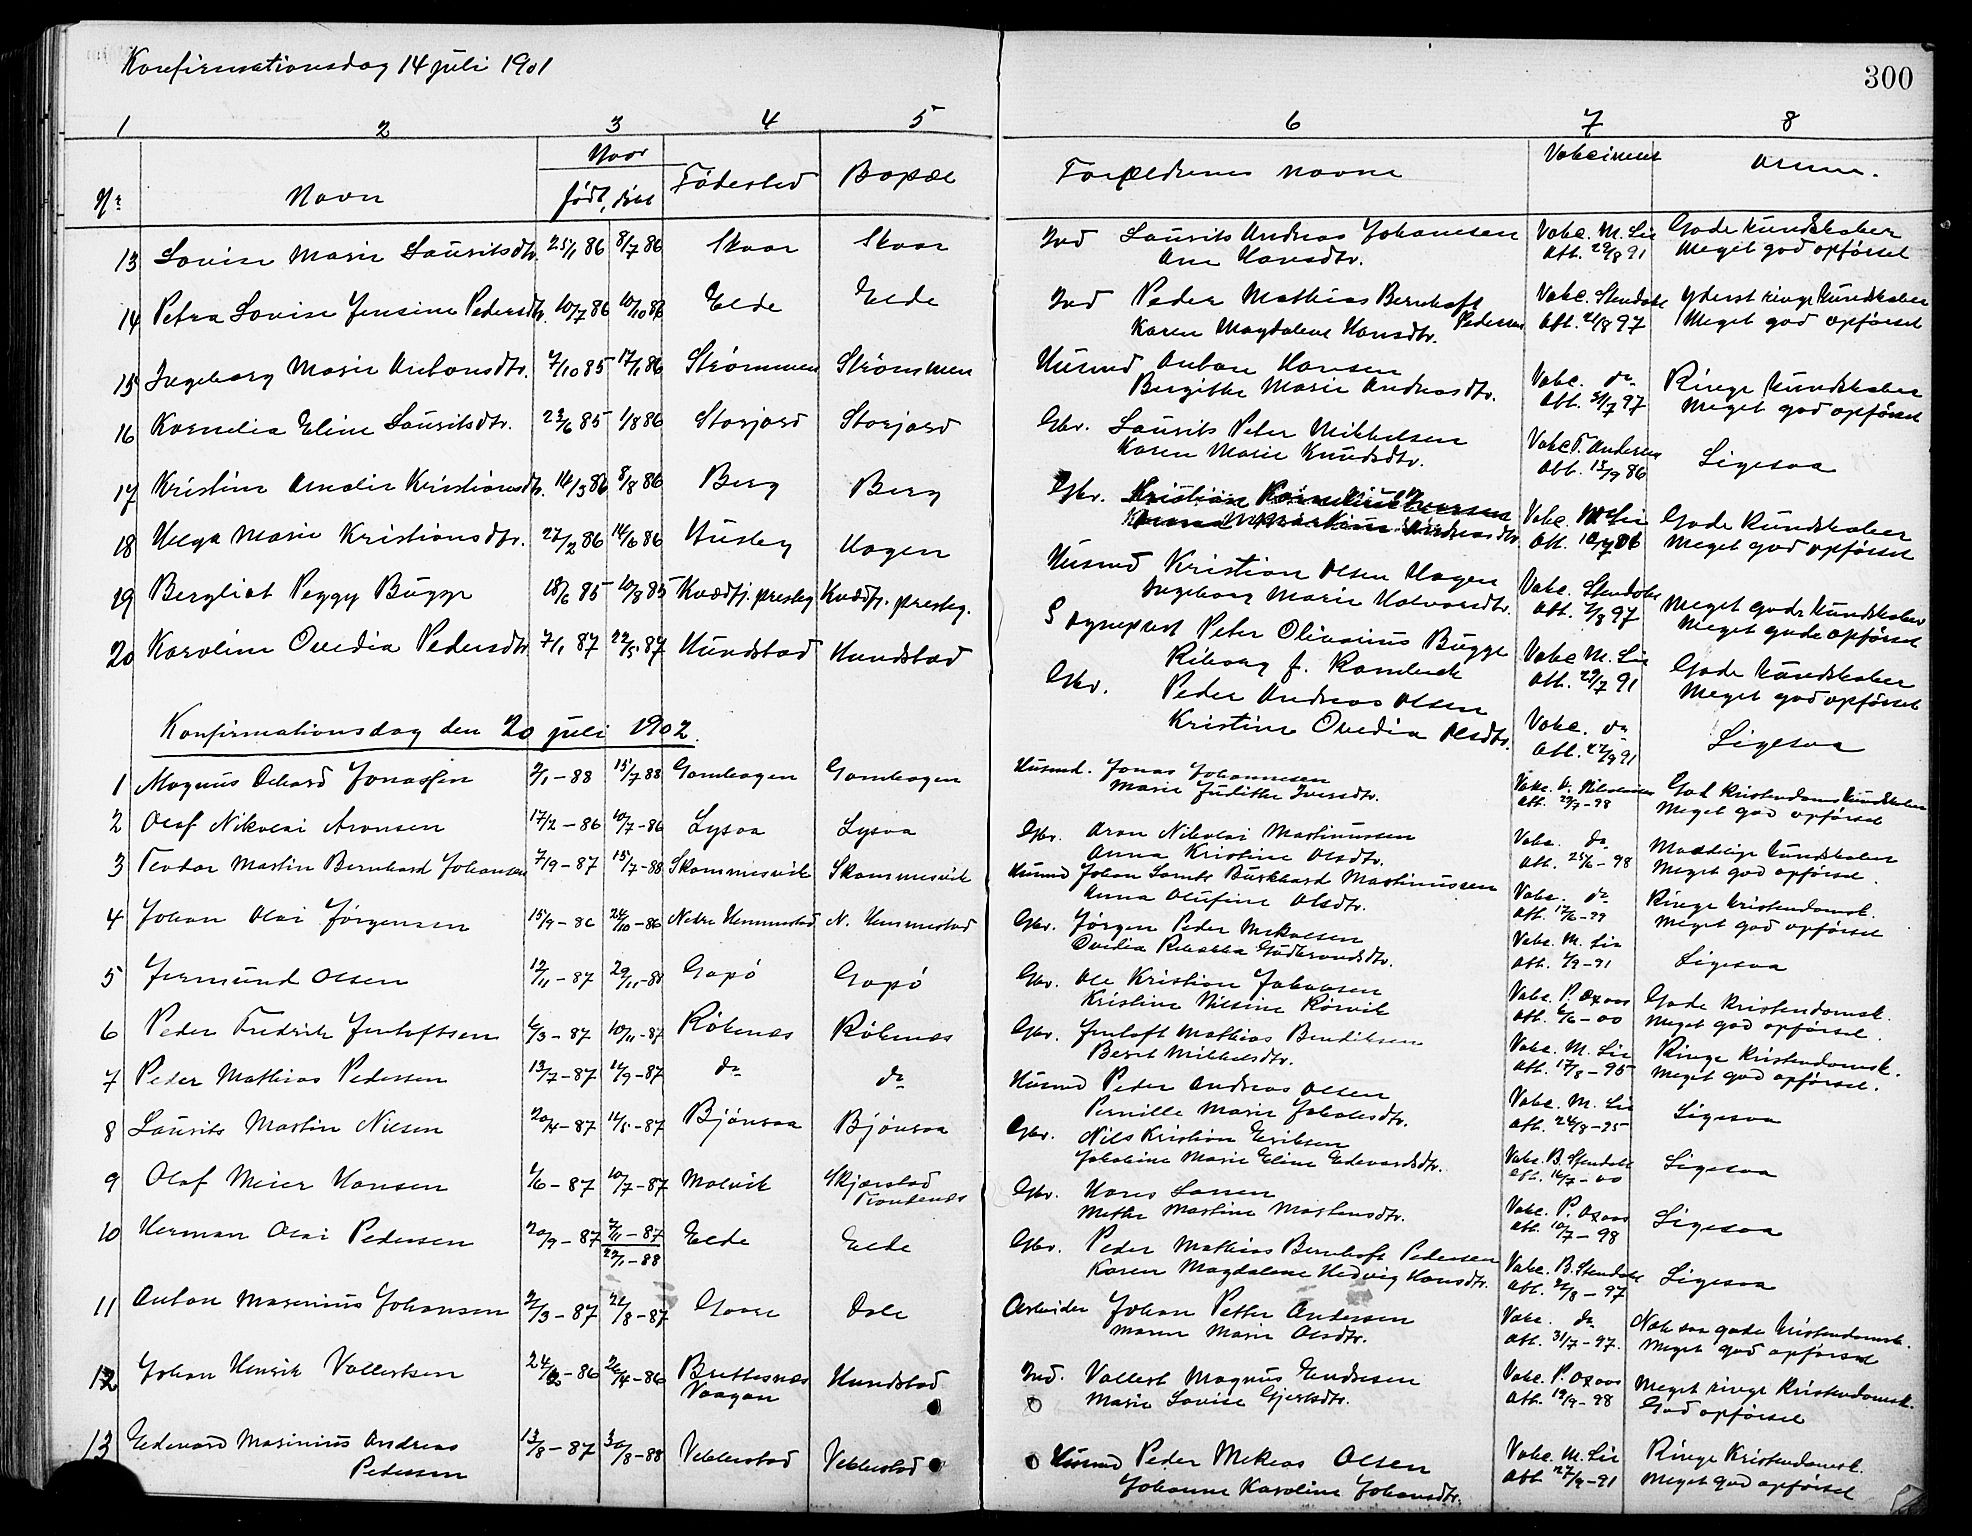 Konfirmationsdag 14 juli 1901
300
1 2 3 4 5 6 7 8
Naar
Nr Navn født, døbt Fødested Bopæl Forældrenes navne
13 Lovise Marie Lauritsdtr. 25/1 86 8/7 86 Skaar Skaar Ind Laurits Andreas Johannesen Vake. M. Lie Gode kundskaber
Ane Hansdtr. Att. 29/8 91 Meget god opførsel
14 Petra Lovise Jensine Pedersdtr. 10/7 86 10/10 86 Elde Elde Ind Peder Mathias Bernhoft Vakc. Stendahl Yderst ringe kundskaber
Pedersen
Karen Magdalene Hansdtr. Att. 2/8 97 Meget god opførsel
15 Ingeborg Marie Antonsdtr. 7/10 85 17/1 86 Strømmen Strømmen Husmd Anton Hansen Vakc. do Ringe kundskaber
Bergitte Marie Andreasdtr. Att. 31/7 97 Meget god opførsel
16 Kornelia Eline Lauritsdtr. 23/6 85 1/8 86 Storjord Storjord Gbr. Laurits Peter Mikkelsen Vakc T. Andersen Ligesaa
Karen Marie Knudsdtr. Att. 15/9 86
17 Kristine Amalie Kristiansdtr. 14/3 86 8/8 86 Berg Berg Gbr. Kristian Iversen Vakc. M Lie Gode kundskaber
Andreasdtr. Att. Meget god opførsel
18 Helga Marie Kristiansdtr. 27/2 86 14/6 86 Husby Hagen Husmd Kristian Olsen Hagen Vakc. Stendahl Meget gode kundskaber
Ingeborg Marie Halvorsdtr. Att. 2/8 97 Meget gode opførsel
19 Bergliot Peggy Bugge 18/6 85 10/8 85 Kvædfj. presteg Kvædfj. presteg. Sognepræst Peter Olivarius Bugge Vakc M. Lie Gode kundskaber
Rikborg f. Rambech Att. 29/7 91 Meget god opførsel
20 Karoline Ovedia Pedersdtr 7/1 87 22/5 87 Hundstad Hundstad Gbr. Peder Andreas Olsen Vakc. do Ligesaa
Kristine Ovedia Olsdtr. Att. 22/9 91
Konfirmationsdag den 20 juli 1902.
1 Magnus Jonassen 2/1 - 88 15/7 88 Gamhagen Gamhagen Husmd. Jonas Johannesen Vakc. Nikolaisen God kristendomskundskaber
Marie Judithe Iversdtr. Att. 29/7 - 98 Meget god opførsel
2 Olaf Nikolai Aronsen 17/2 - 86 10/7 - 86 Lysaa Lysaa Gbr. Aron Nikolai Martinussen Vakc. do Maadelige kundskaber
Anna Kristine Olsdtr. Att. 25/6 - 98 Meget god opførsel.
3 Teodor Martin Bernhard Johansen 7/9 - 87 15/7 - 88 Skammesvik Skammesvik Husmd Johan Burkhard Martinussen Vakc. do Ringe kristendomsk.
Anna Olufine Olsdtr. Att. 12/6 - 99 Meget god opførsel
4 Johan Olai Jørgensen 15/9 - 86 24/10 - 86 Nedre Hemmestad N. Hemmestad Gbr. Jørgen Peder Mekalsen Vakc. M. Lie Ligesaa
Ovidia Rebekka Gudbrandsdtr. Att. 2/9 - 91
5 Jermund Olsen 12/11 - 87 29/11 - 88 Gapø Gapø Gbr. Ole Kristian Johansen Vakc. P. Oxaas Gode kristendomsk.
Kristine Nilsine Rørvik Att. 6/6 - 00 Meget god opførsel.
6 Peder Fredrik Jentoftsen 6/3 - 87 10/11 - 87 Røkenæs Røkenæs Gbr. Jentoft Mathias Bendiksen Vakc. M. Lie Ringe kristendomsk.
Beret Mikkelsdtr. Att. 17/8 - 95 Meget god opførsel.
7 Peder Mathias Pedersen 13/7 - 87 11/9 - 87 do do Husmd Peder Andreas Olsen Vakc. M. Lie Ligesaa
Pernille Marie Jakobsdtr. Att. 24/8 - 95
8 Laurits Martin Nilsen 20/4 - 87 14/5 - 87 Bjønraa Bjønraa Gbr. Nils Kristian Eriksen Vakc. B. Stendahl Ligesaa
Jakobine Marie Eline Edvardsdtr. Att. 14/7 - 00
9 Olaf Meier Hansen 1/6 - 87 10/7 - 87 Molvik Skjærstad Gbr. Hans Larsen Vakc. P. Oxaas Ligesaa
Trondenæs Methe Martine Mortensdtr. Att. 10/7 - 98
10 Herman Olai Pedersen 20/9 - 87 2/11 - 87 Elde Elde Gbr. Peder Mathias Bernhoft Pedersen Vakc. B. Stendahl Ligesaa
22/1 - 88 Karen Magdalene Hedvig Hansdtr. Att. 2/8 - 97
11 Anton Marinius Johansen 2/3 - 87 21/8 - 87 Gaare Dale Arbeider Johan Petter Andersen Vakc. do Nok saa gode kristendomsk.
Maren Marie Olsdtr. Att. 31/7 - 97. Meget god opførsel
12 Johan Henrik Vollertsen 24/2 - 86 26/4 - 86 Brettesnæs Hundstad Ind. Vollert Magnus Endresen Vakc. P. Oxaas Meget ringe kristendomsk.
Vaagan Marie Lovise Gjertsdtr. Att. 19/9 - 98 God opførsel
13 Edevard Marinius Andreas 13/8 - 87 30/8 - 88 Vebberstad Vebberstad Husmd Peder Mekeas Olsen Vakc. M. Lie Ringe kristendomsk.
Pedersen Johanne Karoline Johansdtr. Att. 27/9 - 91 Meget god opførsel